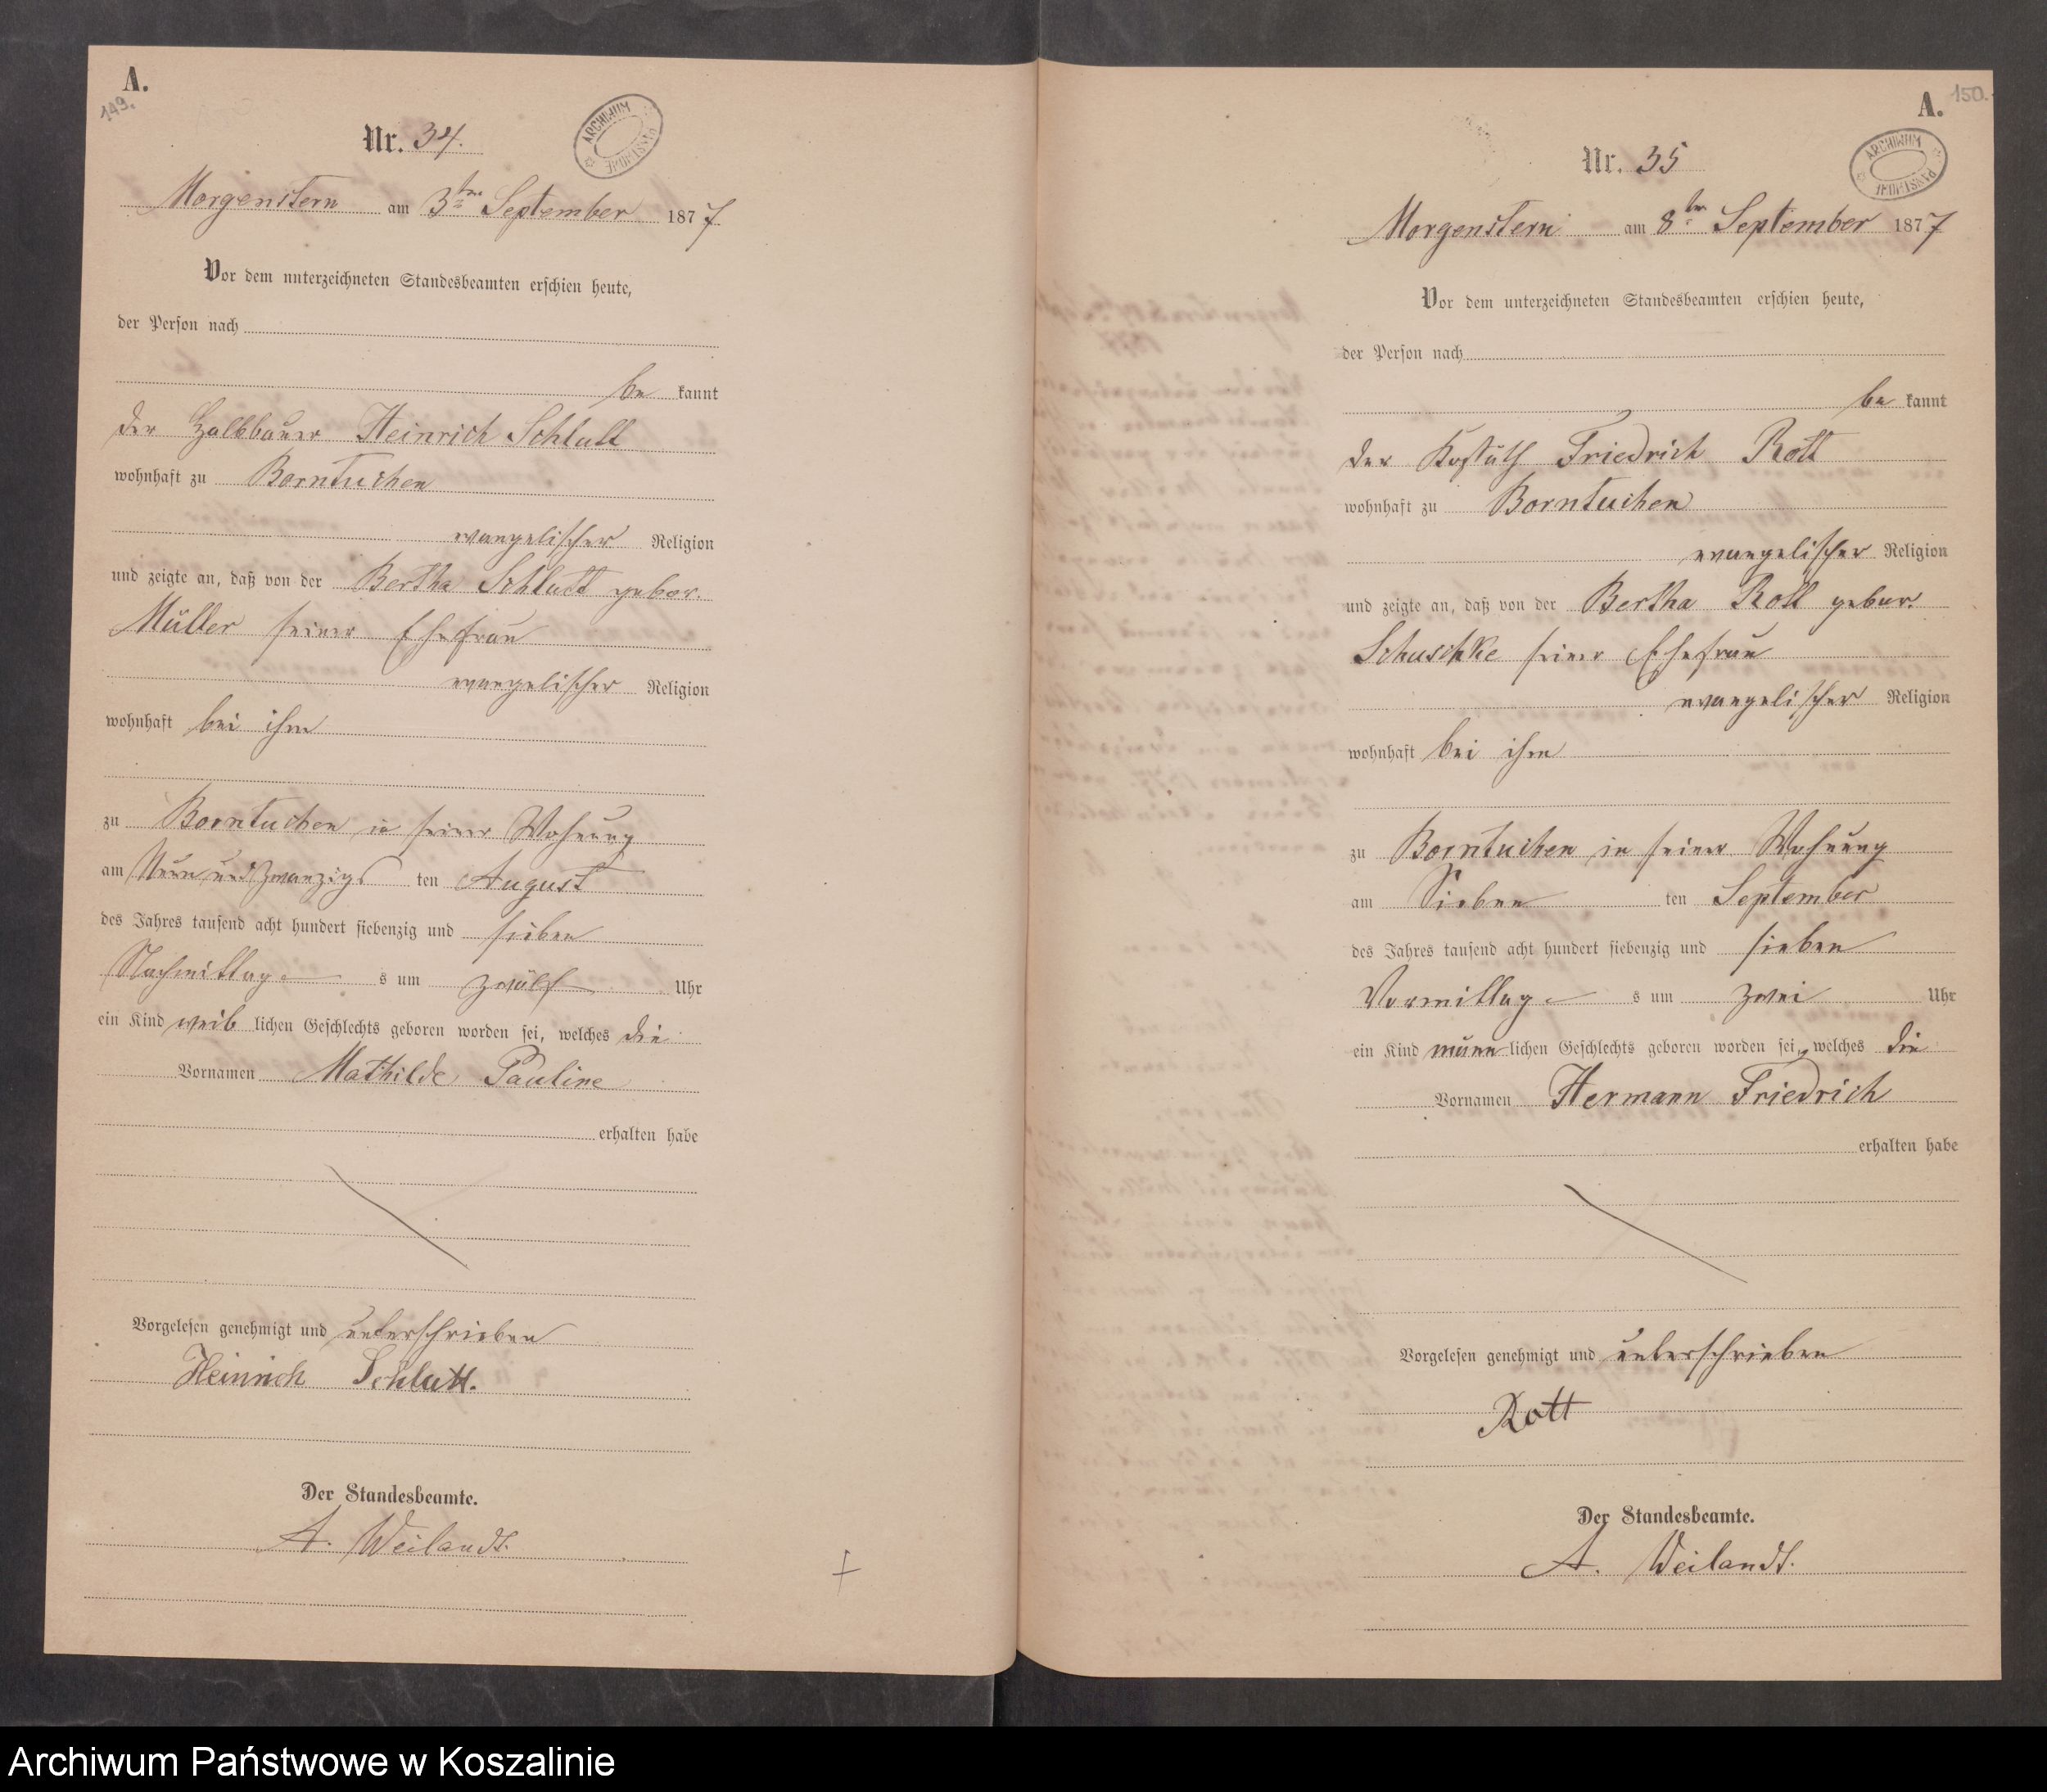 A.
149.
Nr. 34.
ARCHIWUM PAŃSTWOWE
Morgenstern am 3ten September 1877
Vor dem unterzeichneten Standesbeamten erschien heute,
der Person nach
be kannt
der Halbbauer Heinrich Schlutt
wohnhaft zu Borntuchen
evangelischer Religion
und zeigte an, daß von der Bertha Schlutt gebor.
Müller seiner Ehefrau
evangelischer Religion
wohnhaft bei ihm
zu Borntuchen in seiner Wohnung
am Neun und zwanzigs ten August
des Jahres tausend acht hundert siebenzig und sieben
Nachmittag s um zwölf Uhr
ein Kind weib lichen Geschlechts geboren worden sei, welches die
Vornamen Mathilde Pauline
erhalten habe
Vorgelesen genehmigt und unterschrieben
Heinrich Schlutt.
Der Standesbeamte.
A. Weilandt.
A.
150.
Nr. 35
ARCHIWUM PAŃSTWOWE
Morgenstern am 8ten September 1877
Vor dem unterzeichneten Standesbeamten erschien heute,
der Person nach
be kannt
der Friedrich Rott
wohnhaft zu Borntuchen
evangelischer Religion
und zeigte an, daß von der Bertha Rott gebor.
Schuschke seiner Ehefrau
evangelischer Religion
wohnhaft bei ihm
zu Borntuchen in seiner Wohnung
am Sieben ten September
des Jahres tausend acht hundert siebenzig und sieben
Vormittag s um zwei Uhr
ein Kind männ lichen Geschlechts geboren worden sei, welches die
Vornamen Hermann Friedrich
erhalten habe
Vorgelesen genehmigt und unterschrieben
Rott
Der Standesbeamte.
A. Weilandt.
Archiwum Państwowe w Koszalinie